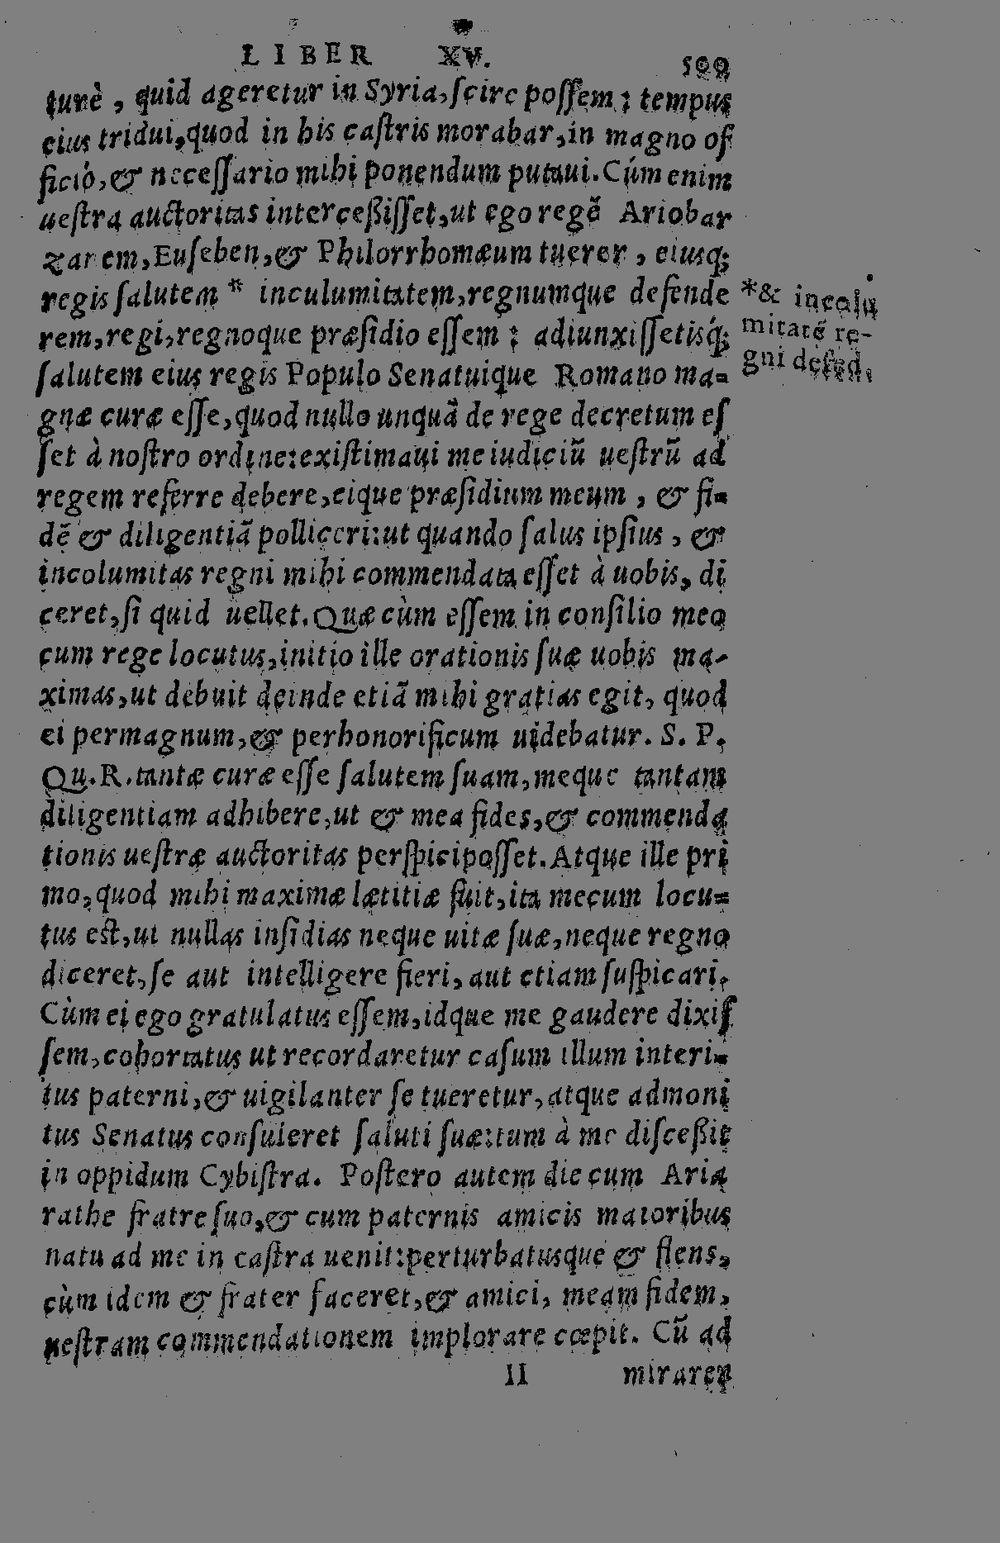 LIBER XV. 500
turè, quid ageretur in Syria, scire possem; tempus
eius tridui, quod in his castris morabar, in magno of
ficio, & necessario mihi ponendum putaui. Cúm enim
uestra auctoritas interceßisset, ut ego regē Ariobar
zanem, Euseben, & Philorrhomæum tuerer, eiusq;
regis salutem * inculumitatem, regnumque defende
rem, regi, regnoque præsidio essem; adiunxissetisq́;
salutem eius regis Populo Senatuique Romano ma-
gnæ curæ esse, quod nullo unquā de rege decretum es
set à nostro ordine: existimaui me iudiciū uestrū ad
regem referre debere, eique præsidium meum, & fi-
dē & diligentiā polliceri: ut quando salus ipsius, &
incolumitas regni mihi commendata esset à uobis, di
ceret, si quid uellet. Quæ cùm essem in consilio meo
cum rege locutus, initio ille orationis suæ uobis ma-
ximas, ut debuit deinde etiā mihi gratias egit, quod
ei permagnum, & perhonorificum uidebatur. S. P.
Qu. R. tantæ curæ esse salutem suam, meque tantam
diligentiam adhibere, ut & mea fides, & commenda
tionis uestræ auctoritas perspici posset. Atque ille pri
mo, quod mihi maximæ lætitiæ fuit, ita mecum locu-
tus est, ut nullas insidias neque uitæ suæ, neque regno
diceret, se aut intelligere fieri, aut etiam suspicari.
Cùm ei ego gratulatus essem, idque me gaudere dixis
sem, cohortatus ut recordaretur casum illum interi-
tus paterni, & uigilanter se tueretur, atque admoni
tus Senatus consuleret saluti suæ: tum à me disceßit
in oppidum Cybistra. Postero autem die cum Aria
rathe fratre suo, & cum paternis amicis maioribus
natu ad me in castra uenit: perturbatusque & flens,
cùm idem & frater faceret, & amici, meam fidem,
uestram commendationem implorare cœpit. Cū ad
II mirarer
*& incolu
mitatē re-
gni defēd.